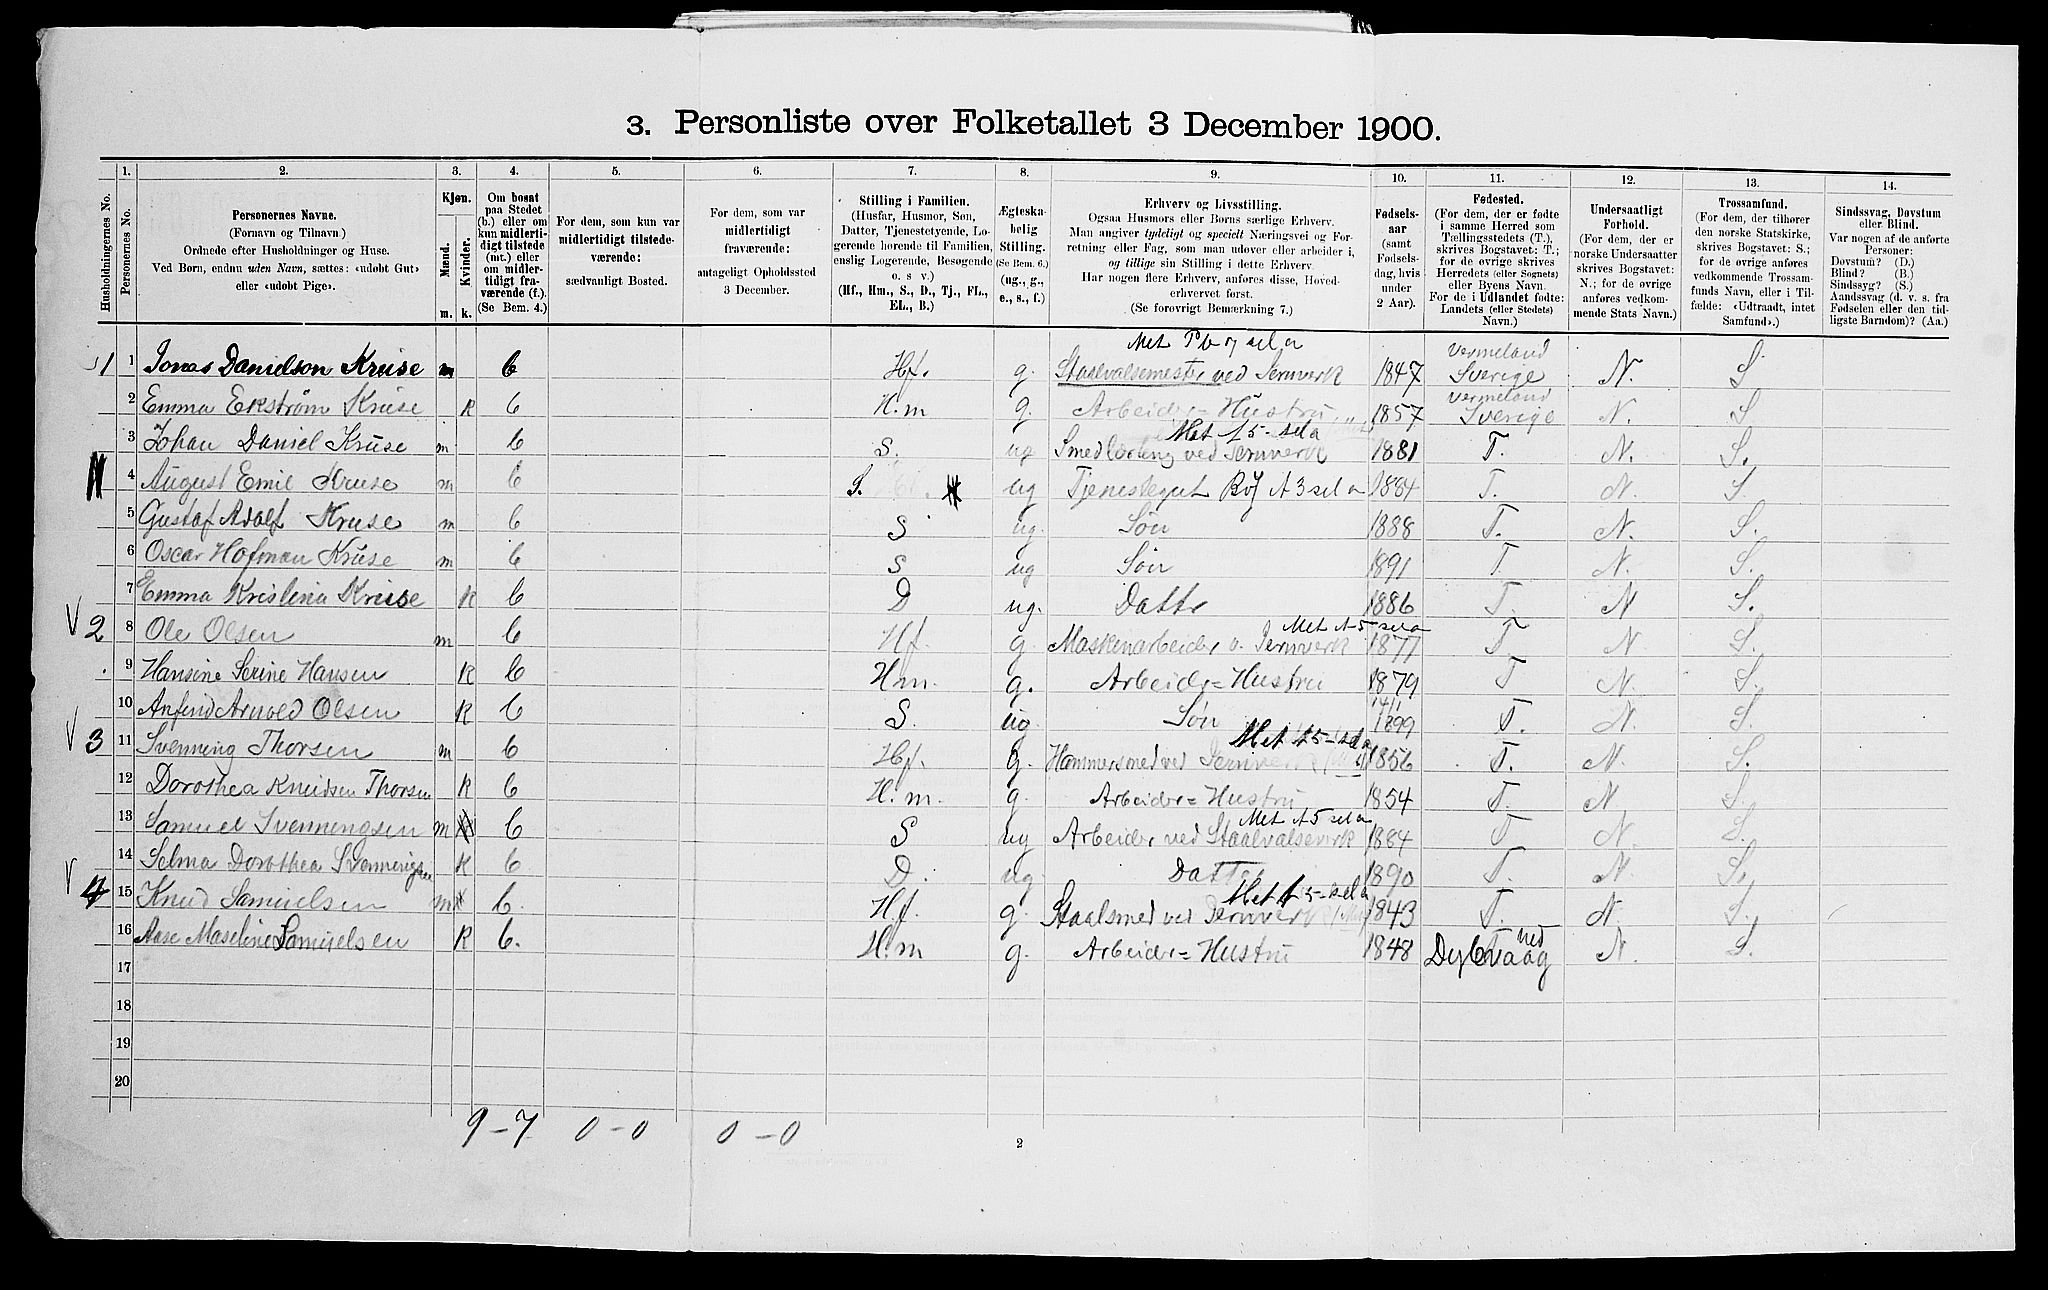 3. Personliste over Folketallet 3 December 1900.
1. 2. 3. 4. 5. 6. 7. 8. 9. 10. 11. 12. 13. 14.
Husholdningernes No.
Personernes No.
Personernes Navne.
(Fornavn og Tilnavn)
Ordnede efter Husholdninger og Huse.
Ved Børn, endnu uden Navn, sættes: «udøbt Gut»
eller «udøbt Pige».
Kjøn.
Mænd.
Kvinder.
m. k.
Om bosat
paa Stedet
(b.) eller om
kun midlerti-
digt tilstede
(mt.) eller
om midler-
tidigt fra-
værende (f.).
(Se Bem. 4.)
For dem, som kun var
midlertidigt tilstede-
værende:
sædvanligt Bosted.
For dem, som var
midlertidigt
fraværende:
antageligt Opholdssted
3 December.
Stilling i Familien.
(Husfar, Husmor, Søn,
Datter, Tjenestetyende, Lo-
gerende hørende til Familien,
enslig Logerende, Besøgende
o. s. v.)
(Hf., Hm., S., D., Tj., FL.,
EL., B.)
Ægteska-
belig
Stilling.
(Se Bem. 6.)
(ug., g.,
e., s., f.)
Erhverv og Livsstilling.
Ogsaa Husmors eller Børns særlige Erhverv.
Man angiver tydeligt og specielt Næringsvei og For-
retning eller Fag, som man udøver eller arbeider i,
og tillige sin Stilling i dette Erhverv.
Har nogen flere Erhverv, anføres disse, Hoved-
erhvervet først.
(Se forøvrigt Bemærkning 7.)
Fødsels-
aar
(samt
Fødsels-
dag, hvis
under
2 Aar).
Fødested.
(For dem, der er fødte
i samme Herred som
Tællingsstedets (T.),
skrives Bogstavet: T.;
for de øvrige skrives
Herredets (eller Sognets)
eller Byens Navn.
For de i Udlandet fødte:
Landets (eller Stedets)
Navn.)
Undersaatligt
Forhold.
(For dem, der er
norske Undersaatter
skrives Bogstavet:
N.; for de øvrige
anføres vedkom-
mende Stats Navn.)
Trossamfund.
(For dem, der tilhører
den norske Statskirke,
skrives Bogstavet: S.;
for de øvrige anføres
vedkommende Trossam-
funds Navn, eller i Til-
fælde: «Udtraadt, intet
Samfund».)
Sindssvag, Døvstum
eller Blind.
Var nogen af de anførte
Personer:
Døvstum? (D.)
Blind? (B.)
Sindssyg? (S.)
Aandssvag (d. v. s. fra
Fødselen eller den tid-
ligste Barndom)? (Aa.)
1 1 Jonas Danielson Kruse m b Hf. g. Staalvalsemester ved Jernverk 1847 Vermeland Sverige N. S.
2 Emma Ekstrøm Kruse k b H.m g. Arbeider=Hustru 1857 Vermeland Sverige N. S
3 Johan Daniel Kruse m b S. ug Smedlærling ved Jernverk Met 15-sela 1881 T. N. S.
4 August Emil Kruse m b S. ug Tjenestegut 1884 T. N. S.
5 Gustaf Adolf Kruse m b S ug. Søn 1888 T. N. S.
6 Oscar Hofman Kruse m b S ug Søn 1891 T. N. S.
7 Emma Kristina Kruse k b D ug. Datte 1886 T. N S.
2 8 Ole Olsen m b Hf. g. Maskinarbeider v. Jernverk Met 15-sela 1877 T. N S.
9 Hansine Serine Hansen k b H.m. g. Arbeider=Hustru 1879 T N. S.
10 Anfind Arnold Olsen k b S. ug. Søn 1899 T. N. S.
3 11 Svenning Thorsen m b Hf. g. Hammersmed ved Jernverk Met 15-sela 1856 T. N. S.
12 Dorothea Knudsen Thorsen k b H.m. g. Arbeider=Hustru 1854 T. N. S.
13 Samuel Svenningsen m b S ug Arbeider ved Staalvalseverk Met 15 sela 1884 T N. S.
14 Selma Dorothea Svenningsen k b D. ug. Datter 1890 T. N. S.
4 15 Knud Samuelsen m b. H.f. g. Staalsmed ved Jernverk Met 15-sela 1843 T. N. S.
16 Aase Maseline Samuelsen k b. H.m g. Arbeider=Hustru 1848 Dybvaag N. S.
17
18
19
20
9-7 0-0 0-0
2